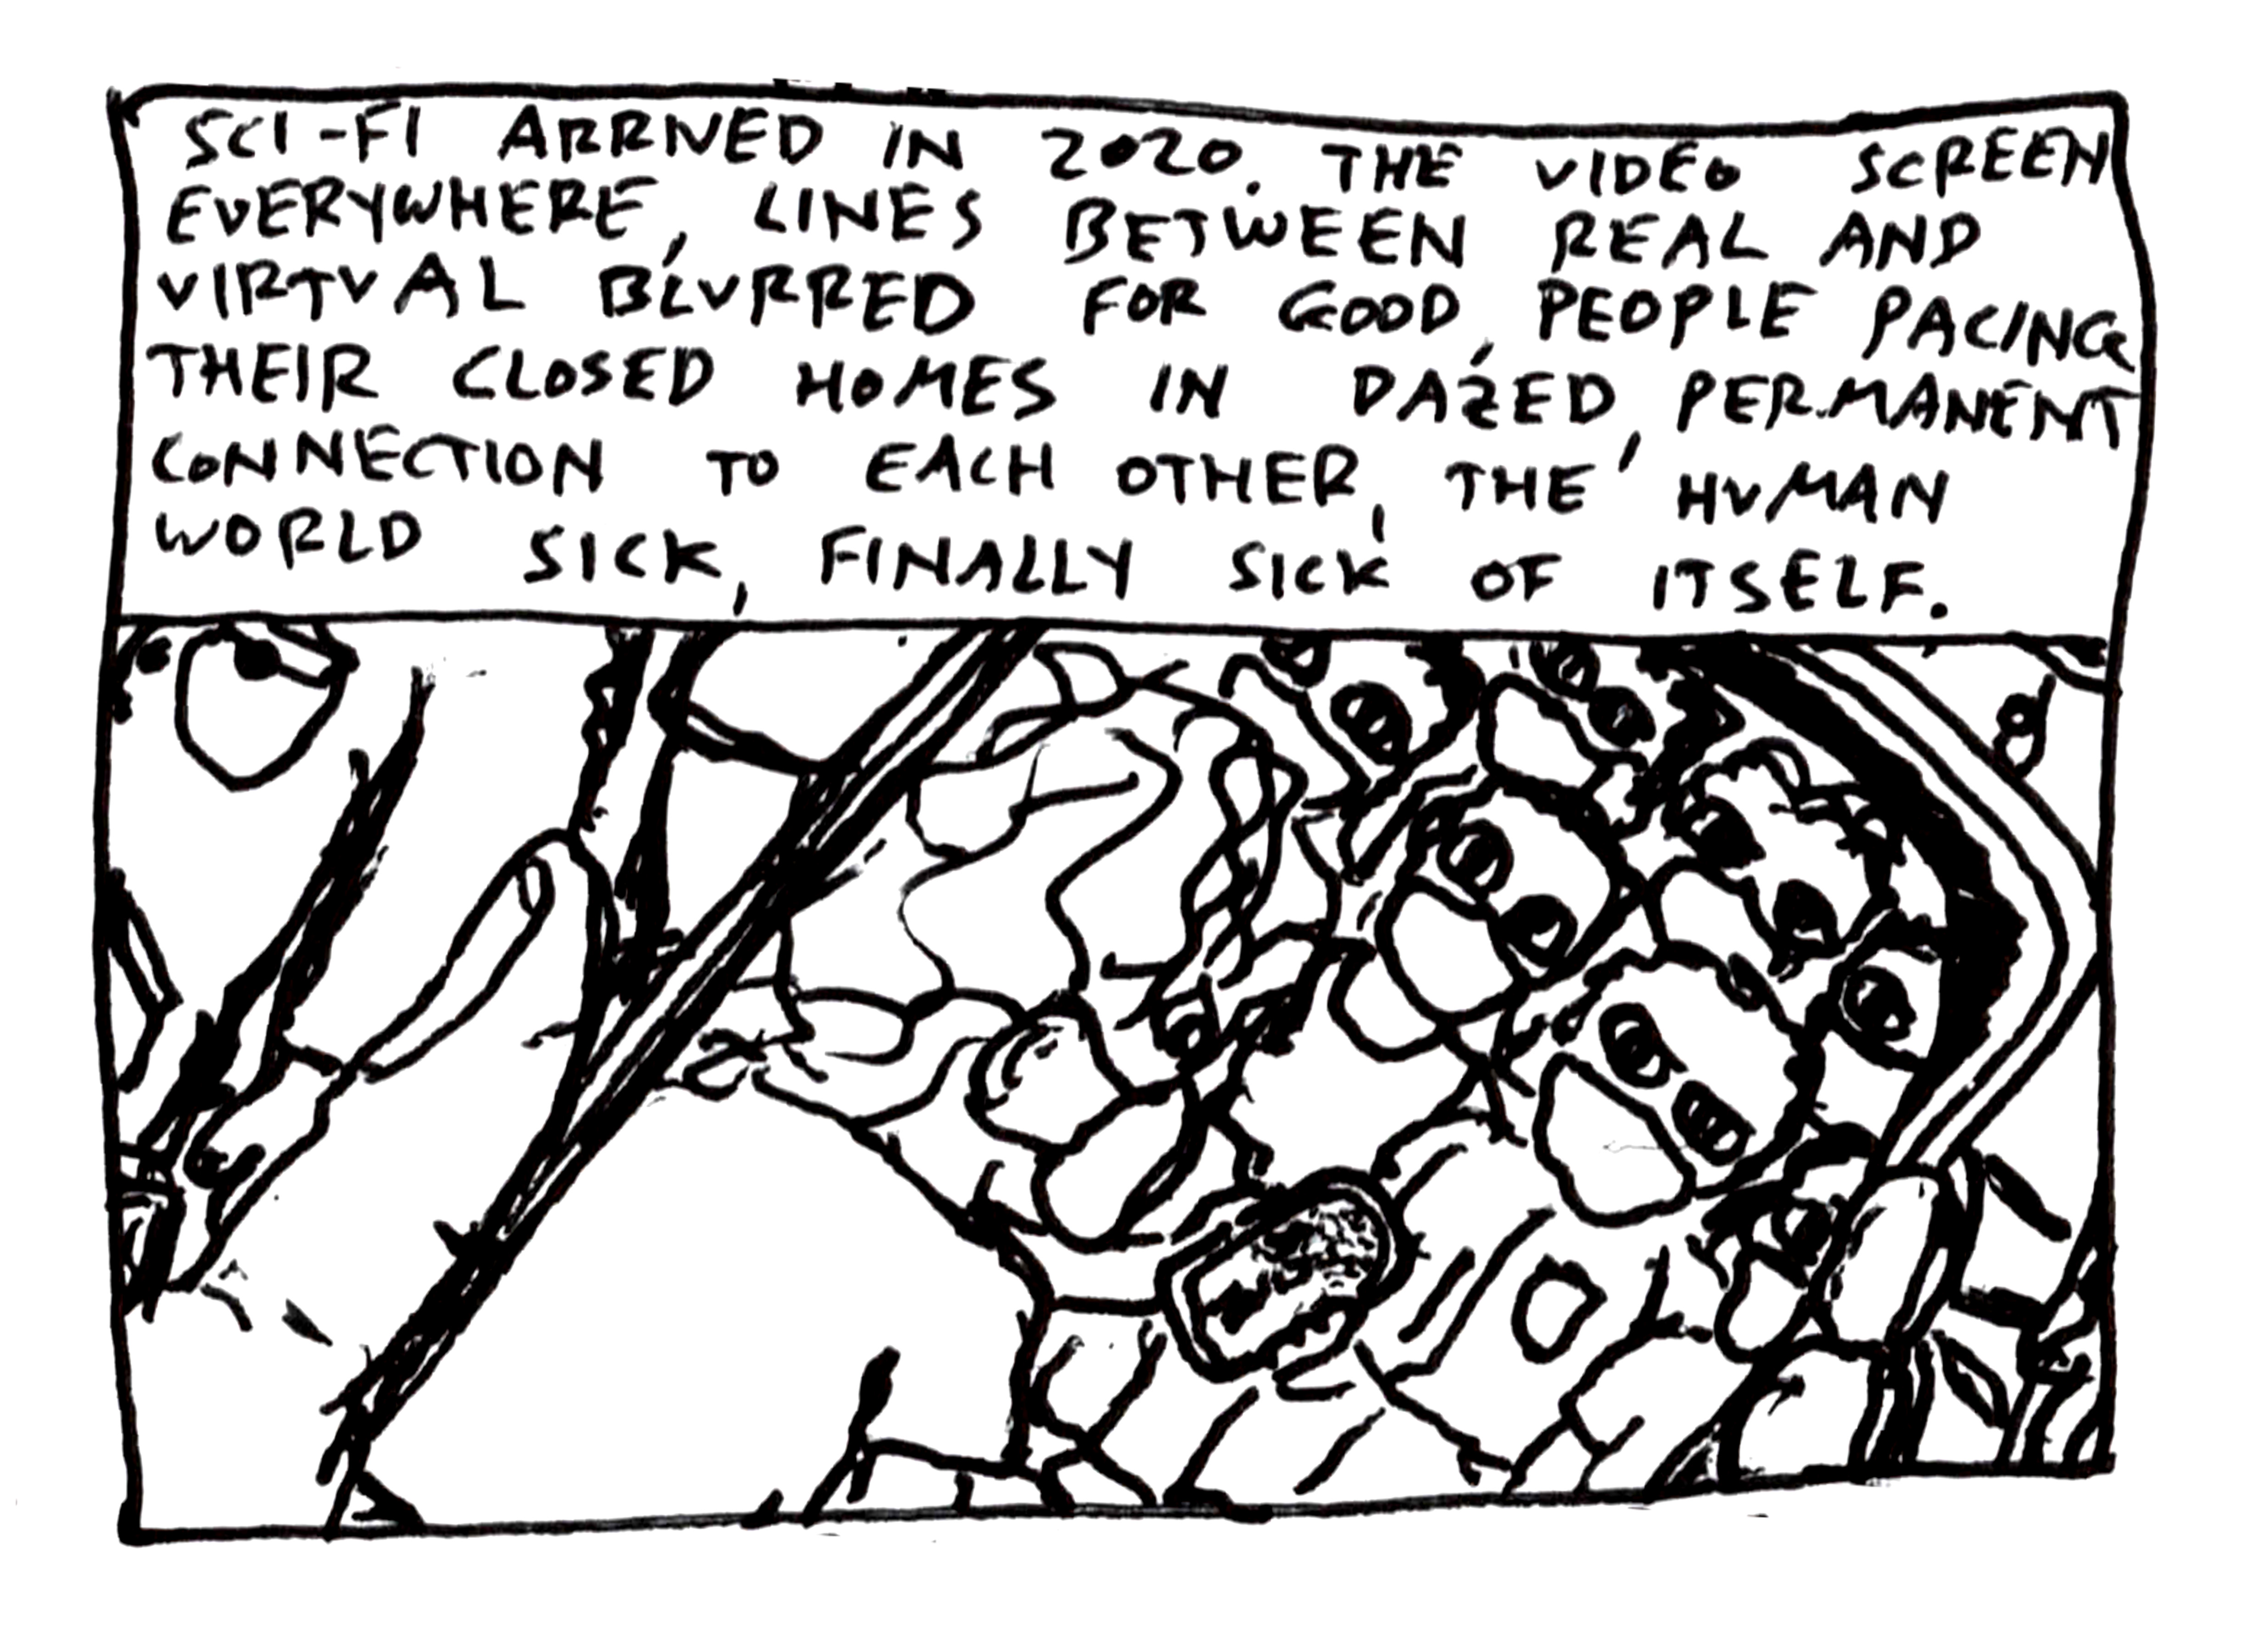 SCI-FI ARRIVED IN 2020. THE VIDEO SCREEN
EVERYWHERE, LINES BETWEEN REAL AND
VIRTUAL BLURRED FOR GOOD, PEOPLE PACING
THEIR CLOSED HOMES IN DAZED, PERMANENT
CONNECTION TO EACH OTHER, THE HUMAN
WORLD SICK, FINALLY SICK OF ITSELF.